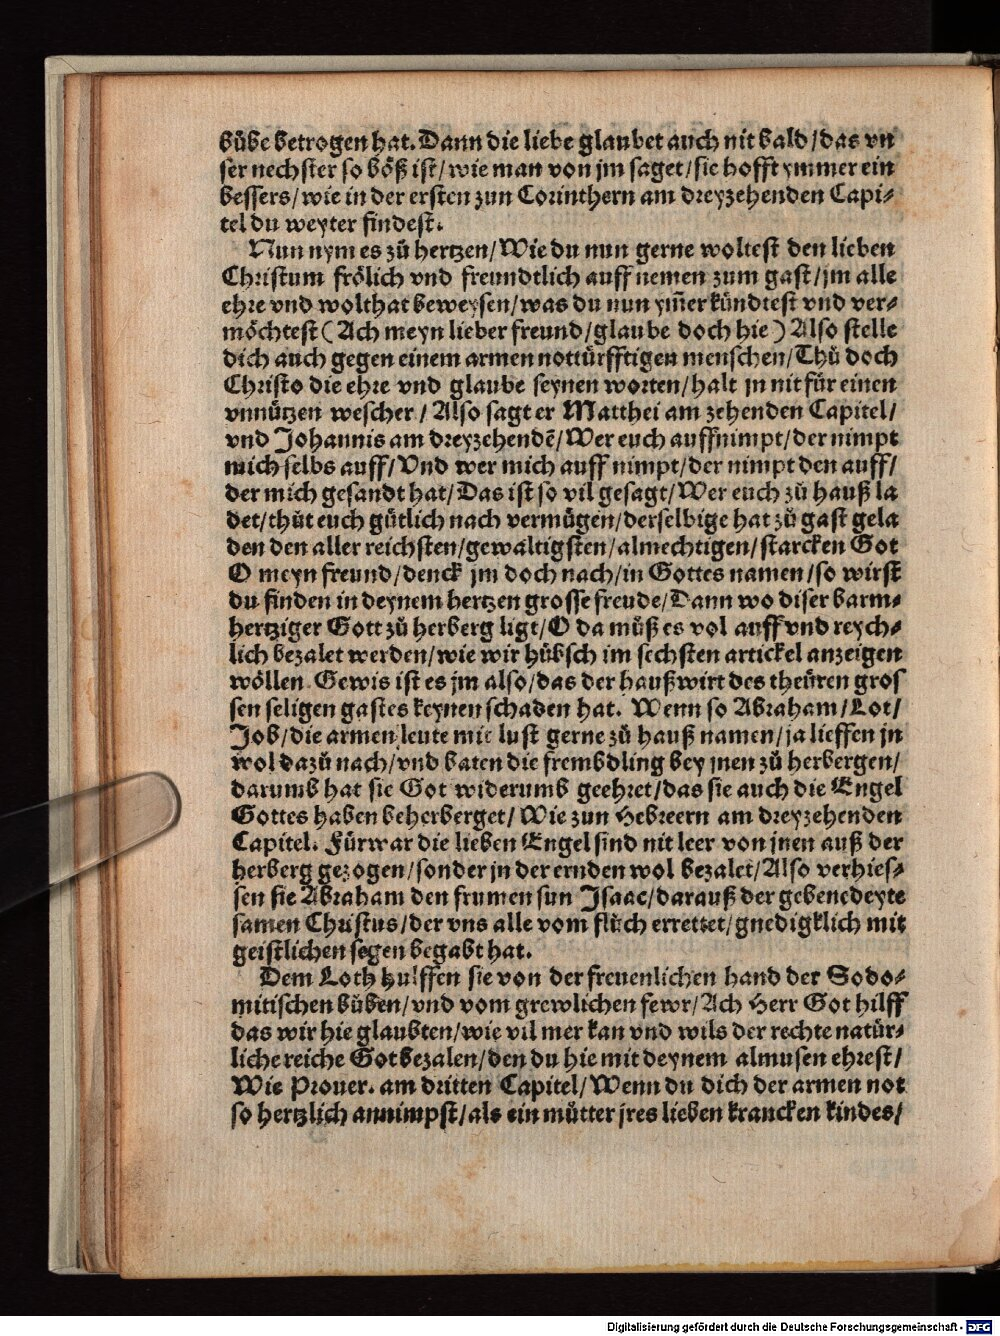 bůbe betrogen hat. Dann die liebe glaubet auch nit bald/das vn
ser nechster so böß ist/wie man von jm saget/sie hofft ymmer ein
bessers/wie in der ersten zun Corinthern am dreyzehenden Capi-
tel du weyter findest.
Nun nym es zů hertzen/Wie du nun gerne woltest den lieben
Christum frölich vnd freundtlich auff nemen zum gast/jm alle
ehre vnd wolthat beweysen/was du nun ym̃er kündtest vnd ver-
möchtest (Ach meyn lieber freund/glaube doch hie) Also stelle
dich auch gegen einem armen nottürfftigen menschen/Thů doch
Christo die ehre vnd glaube seynen worten/halt jn nit für einen
vnnützen wescher/Also sagt er Matthei am zehenden Capitel/
vnd Johannis am dreyzehendẽ/Wer euch auffnimpt/der nimpt
mich selbs auff/Vnd wer mich auff nimpt/der nimpt den auff/
der mich gesandt hat/Das ist so vil gesagt/Wer euch zů hauß la
det/thůt euch gůtlich nach vermügen/derselbige hat zů gast gela
den den aller reichsten/gewaltigsten/almechtigen/starcken Got
O meyn freund/denck jm doch nach/in Gottes namen/so wirst
du finden in deynem hertzen grosse freude/Dann wo diser barm-
hertziger Gott zů herberg ligt/O da můß es vol auff vnd reych-
lich bezalet werden/wie wir hübsch im sechsten artickel anzeigen
wöllen. Gewis ist es jm also/das der haußwirt des theüren gros
sen seligen gastes keynen schaden hat. Wenn so Abraham/Lot/
Job/die armen leute mit lust gerne zů hauß namen/ja lieffen jn
wol dazů nach/vnd baten die frembdling bey jnen zů herbergen/
darumb hat sie Got widerumb geehret/das sie auch die Engel
Gottes haben beherberget/Wie zun Hebreern am dreyzehenden
Capitel. Fürwar die lieben Engel sind nit leer von jnen auß der
herberg gezogen/sonder jn der ernden wol bezalet/Also verhies-
sen sie Abraham den frumen sun Isaac/darauß der gebenedeyte
samen Christus/der vns alle vom flůch errettet/gnedigklich mit
geistlichen segen begabt hat.
Dem Loth hulffen sie von der freuenlichen hand der Sodo-
mitischen bůben/vnd vom grewlichen fewr/Ach Herr Got hilff
das wir hie glaubten/wie vil mer kan vnd wils der rechte natür-
liche reiche Got bezalen/den du hie mit deynem almusen ehrest/
Wie Prouer. am dritten Capitel/Wenn du dich der armen not
so hertzlich annimpst/als ein můtter jres lieben krancken kindes/
Digitalisierung gefördert durch die Deutsche Forschungsgemeinschaft - DFG